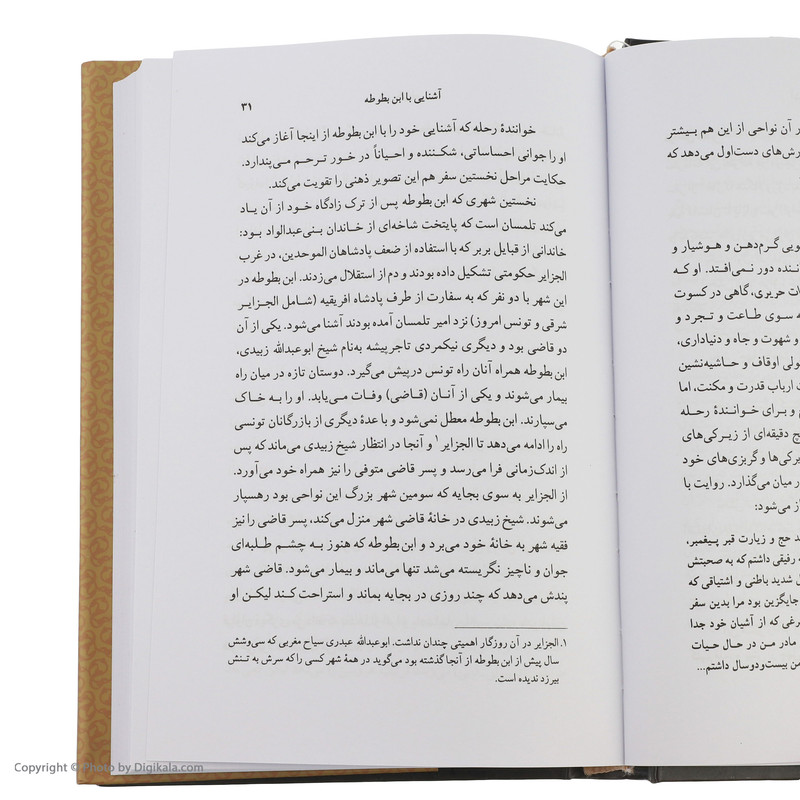 ر آن نواحی از این هم بیشتر
رش‌های دست‌اول می‌دهد که
ویی گرم‌دهن و هوشیار و
ننده دور نمی‌افتد. او که
ات حریری، گاهی در کسوت
ه سوی طاعت و تجرد و
و شهوت و جاه و دنیاداری،
ولی اوقاف و حاشیه‌نشین
ت ارباب قدرت و مکنت، اما
و برای خوانندهٔ رحله
ج دقیقه‌ای از زیرکی‌های
یرکی‌ها و گربزی‌های خود
ر میان می‌گذارد. روایت با
از می‌شود:
د حج و زیارت قبر پیغمبر،
ه رفیقی داشتم که به صحبتش
ل شدید باطنی و اشتیاقی که
جایگزین بود مرا بدین سفر
رغی که از آشیان خود جدا
مادر من در حال حیات
من بیست‌ودو سال داشتم...
آشنایی با ابن بطوطه
۳۱
خوانندهٔ رحله که آشنایی خود را با ابن بطوطه از اینجا آغاز می‌کند
او را جوانی احساساتی، شکننده و احیاناً در خور ترحم می‌پندارد.
حکایت مراحل نخستین سفر هم این تصویر ذهنی را تقویت می‌کند.
نخستین شهری که ابن بطوطه پس از ترک زادگاه خود از آن یاد
می‌کند تلمسان است که پایتخت شاخه‌ای از خاندان بنی‌عبدالواد بود:
خاندانی از قبایل بربر که با استفاده از ضعف پادشاهان الموحدین، در غرب
الجزایر حکومتی تشکیل داده بودند و دم از استقلال می‌زدند. ابن بطوطه در
این شهر با دو نفر که به سفارت از طرف پادشاه افریقیه (شامل الجزایر
شرقی و تونس امروز) نزد امیر تلمسان آمده بودند آشنا می‌شود. یکی از آن
دو قاضی بود و دیگری نیکمردی تاجرپیشه به‌نام شیخ ابوعبدالله زبیدی،
ابن بطوطه همراه آنان راه تونس درپیش می‌گیرد. دوستان تازه در میان راه
بیمار می‌شوند و یکی از آنان (قاضی) وفات می‌یابد. او را به خاک
می‌سپارند. ابن بطوطه معطل نمی‌شود و با عدهٔ دیگری از بازرگانان تونسی
راه را ادامه می‌دهد تا الجزایر۱ و آنجا در انتظار شیخ زبیدی می‌ماند که پس
از اندک‌زمانی فرا می‌رسد و پسر قاضی متوفی را نیز همراه خود می‌آورد.
از الجزایر به سوی بجایه که سومین شهر بزرگ این نواحی بود رهسپار
می‌شوند. شیخ زبیدی در خانهٔ قاضی شهر منزل می‌کند، پسر قاضی را نیز
فقیه شهر به خانهٔ خود می‌برد و ابن بطوطه که هنوز به چشم طلبه‌ای
جوان و ناچیز نگریسته می‌شد تنها می‌ماند و بیمار می‌شود. قاضی شهر
پندش می‌دهد که چند روزی در بجایه بماند و استراحت کند لیکن او
۱. الجزایر در آن روزگار اهمیتی چندان نداشت. ابوعبدالله عبدری سیاح مغربی که سی‌وشش
سال پیش از ابن بطوطه از آنجا گذشته بود می‌گوید در همهٔ شهر کسی را که سرش به تنش
بیرزد ندیده است.
Copyright © Photo by Digikala.com